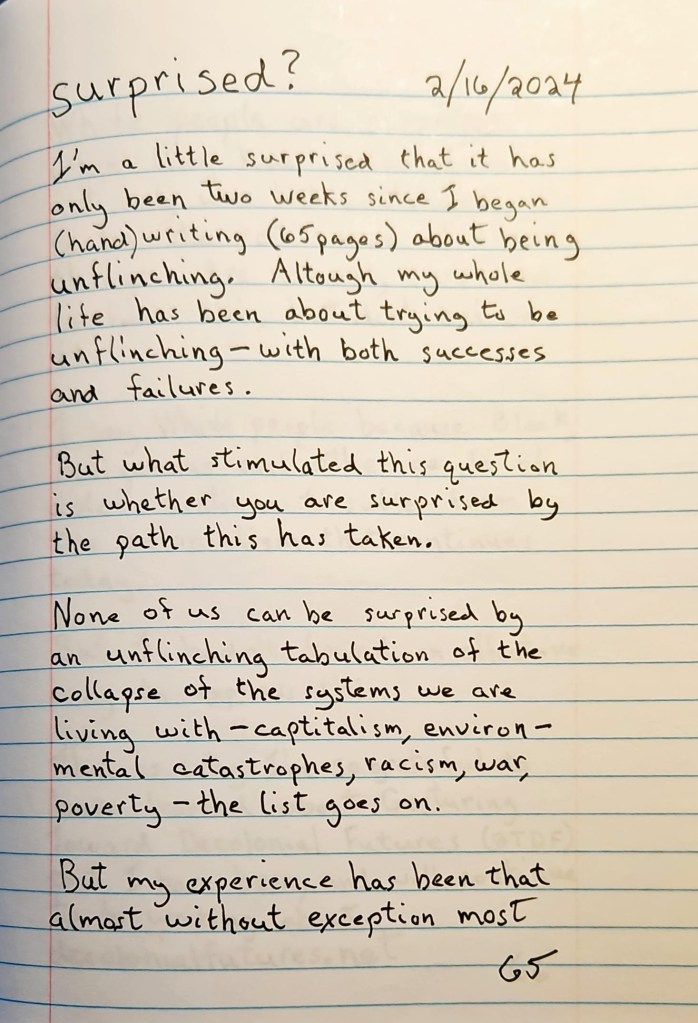 surprised? 2/16/2024
I'm a little surprised that it has
only been two weeks since I began
(hand)writing (65 pages) about being
unflinching. Altough my whole
life has been about trying to be
unflinching - with both successes
and failures.
But what stimulated this question
is whether you are surprised by
the path this has taken.
None of us can be surprised by
an unflinching tabulation of the
collapse of the systems we are
living with - captitalism, environ-
mental catastrophes, racism, war,
poverty - the list goes on.
But my experience has been that
almost without exception most
65